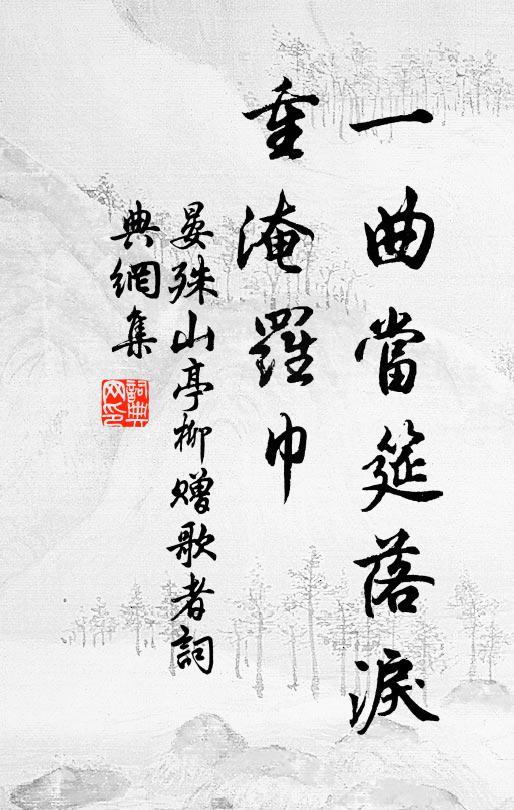 一曲當筵落淚
重淹羅巾
晏殊山亭柳贈歌者詞
典網集
詞典
网印